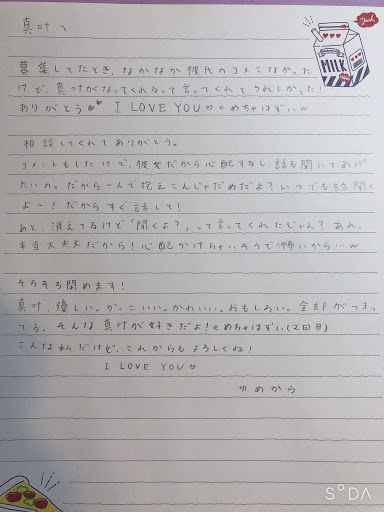 真叶へ
Yeah!
MILK
募集してたとき、なかなか彼氏のコメこなかった
けど、真叶がなってくれるって言ってくれてうれしかった!
ありがとう I LOVE YOU♡ くめちゃはずいw
相談してくれてありがとう。
コメントもしたけど、彼女だから心配するし、話も聞いてあげ
たいの。だから一人で抱えこんじゃだめだよ?いつでも話聞く
よ〜!だからすぐ話して!
あと、消えてるけど「聞くよ?」って言ってくれたじゃん?あれ、
本当大丈夫だから!心配かけちゃいそうで怖いから…w
そろそろ閉めます!
真叶、優しい。かっこいい。かわいい。おもしろい。全部がつまっ
てる。そんな真叶が好きだよ!くめちゃはずい(2回目)
こんな私だけど、これからもよろしくね!
I LOVE YOU♡
ゆめから
SODA